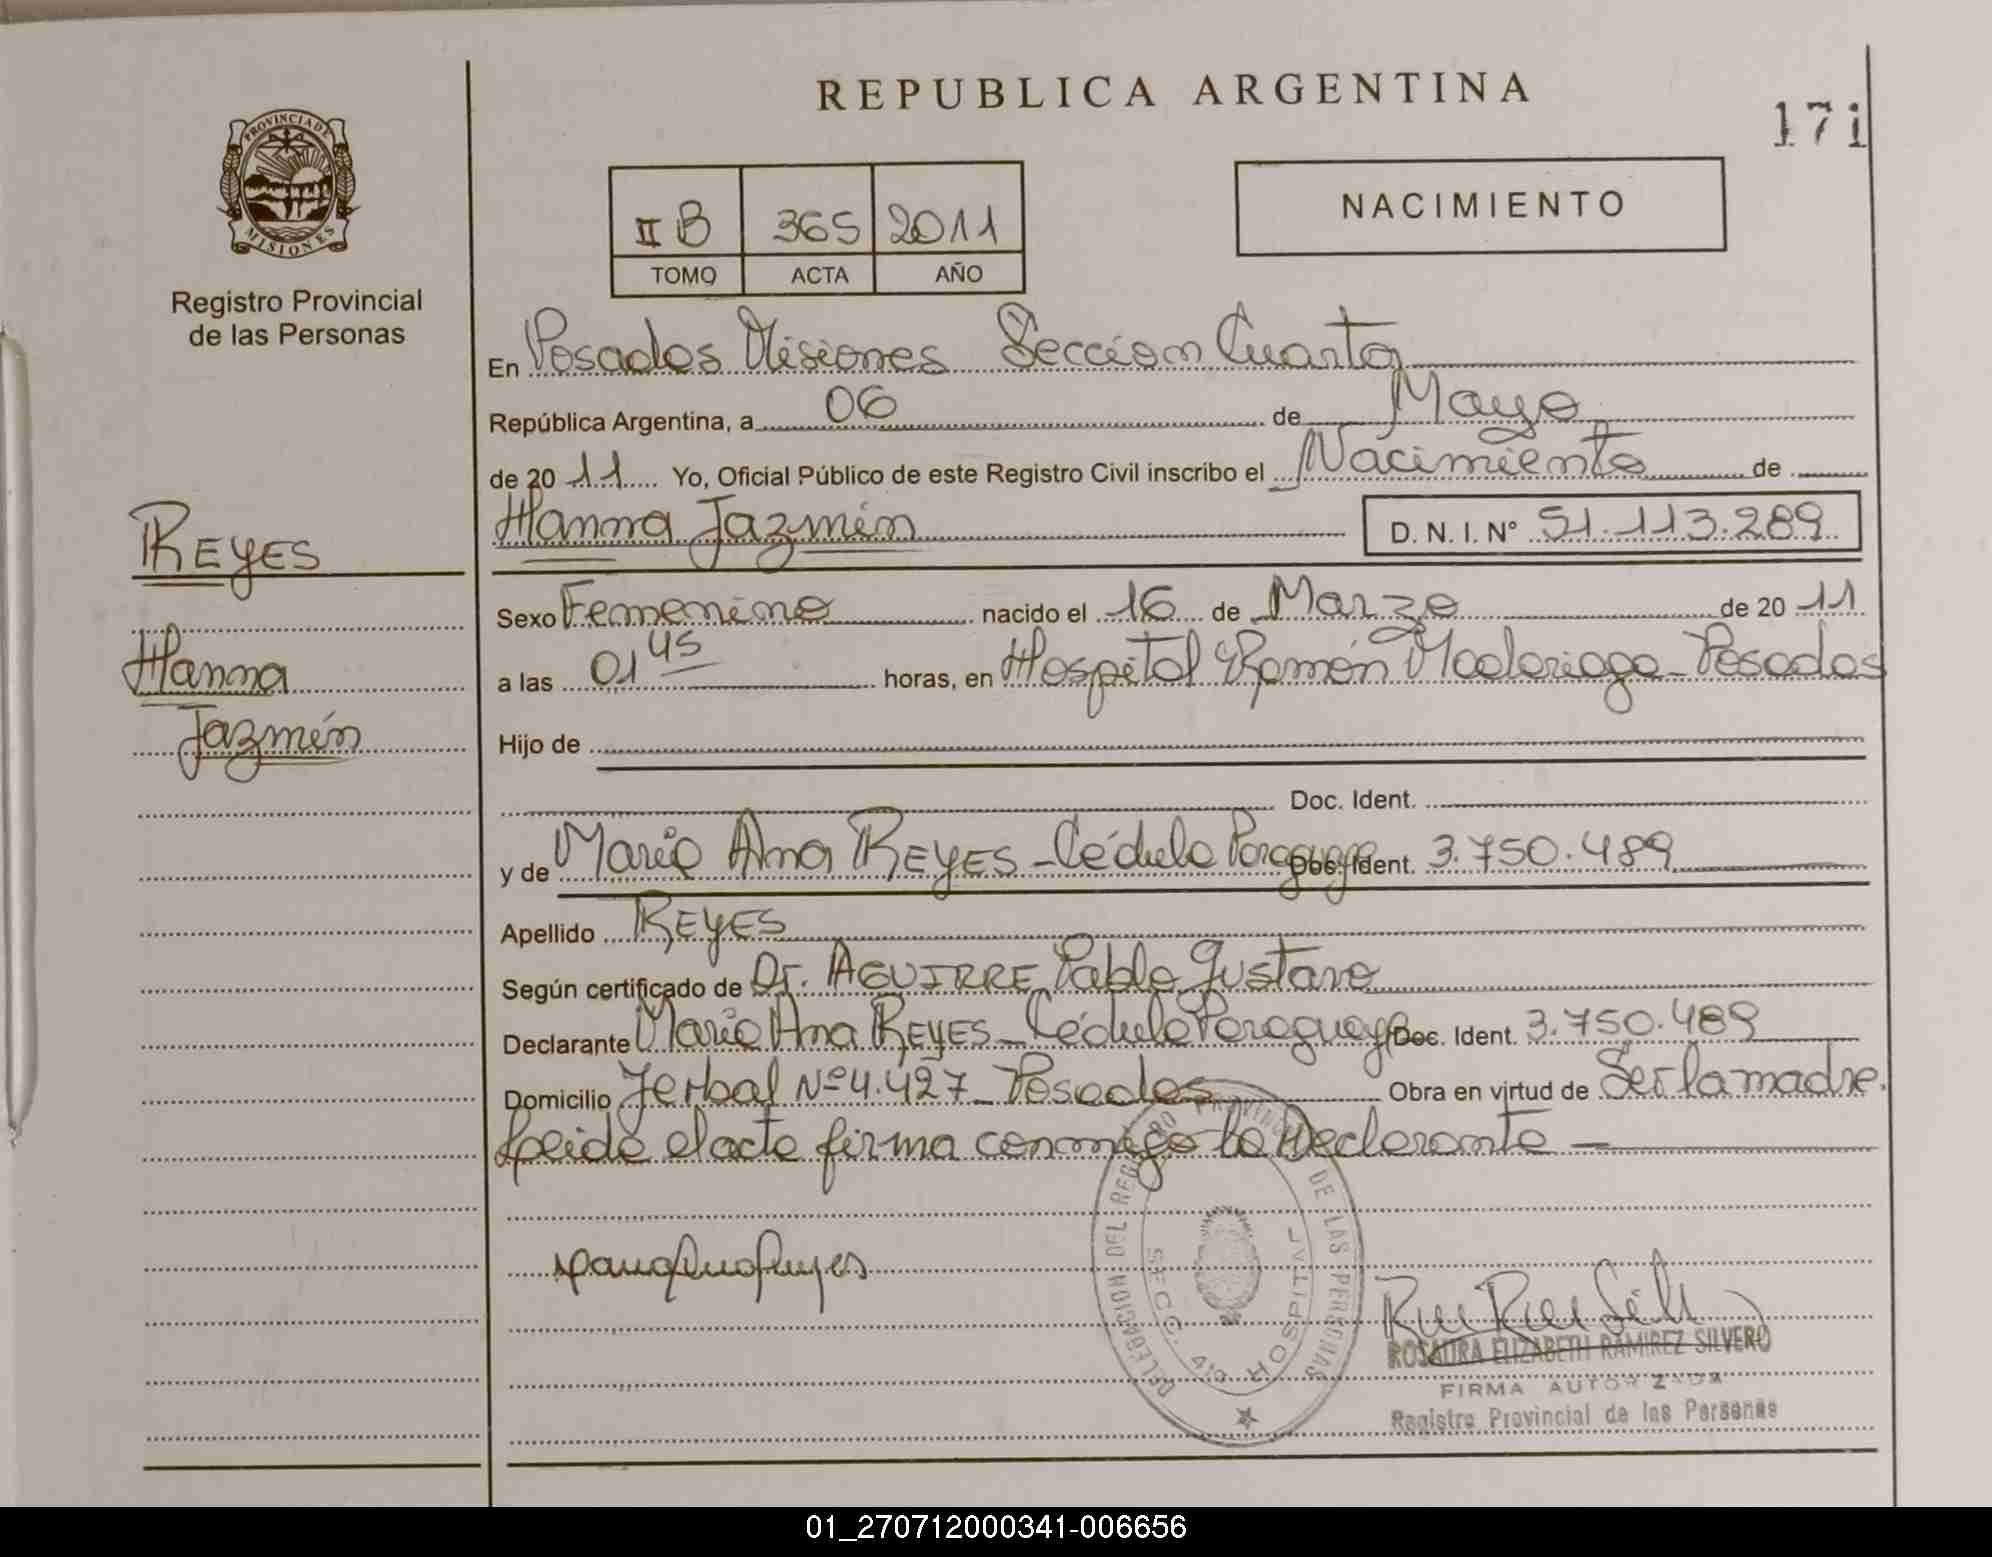 REPUBLICA ARGENTINA
171
PROVINCIA DE MISIONES
Registro Provincial
de las Personas
II B 365 2011
TOMO ACTA AÑO
NACIMIENTO
En Posadas Misiones Sección Cuarta
República Argentina, a 06 de Mayo
de 2011 Yo, Oficial Público de este Registro Civil inscribo el Nacimiento de
REYES
Hanna Jazmín
D. N. I. N° 51.113.289
Sexo Femenino nacido el 16 de Marzo de 2011
Hanna
a las 01 45 horas, en Hospital Ramón Madariaga - Posadas
Jazmín
Hijo de
Doc. Ident.
y de María Ana REYES - Cédula Paraguaya Doc. Ident. 3.750.489
Apellido REYES
Según certificado de Dr. AGUIRRE Pablo Gustavo
Declarante María Ana REYES - Cédula Paraguaya Doc. Ident. 3.750.489
Domicilio Yerbal Nº 4.427 - Posadas Obra en virtud de Ser la madre.
Leida el acta firma conmigo la Declarante -
DELEGACION DEL REGISTRO PROVINCIAL DE LAS PERSONAS
SECC. 4a. HOSPITAL
ROSAURA ELIZABETH RAMIREZ SILVERO
FIRMA AUTORIZADA
Registro Provincial de las Personas
01_270712000341-006656